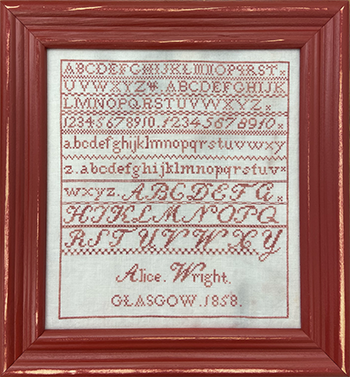 ABCDEFGHIJKLMNOPQRST
UVWXYZ ABCDEFGHIJK
LMNOPQRSTUVWXYZ.
12345678910.12345678910
abcdefghijklmnopqrstuvwxy
z.abcdefghijklmnopqrstuv
wxyz.ABCDEFG
HIJKLMNOPQ
RSTUVWXY
Alice. Wright.
GLASGOW.1858.